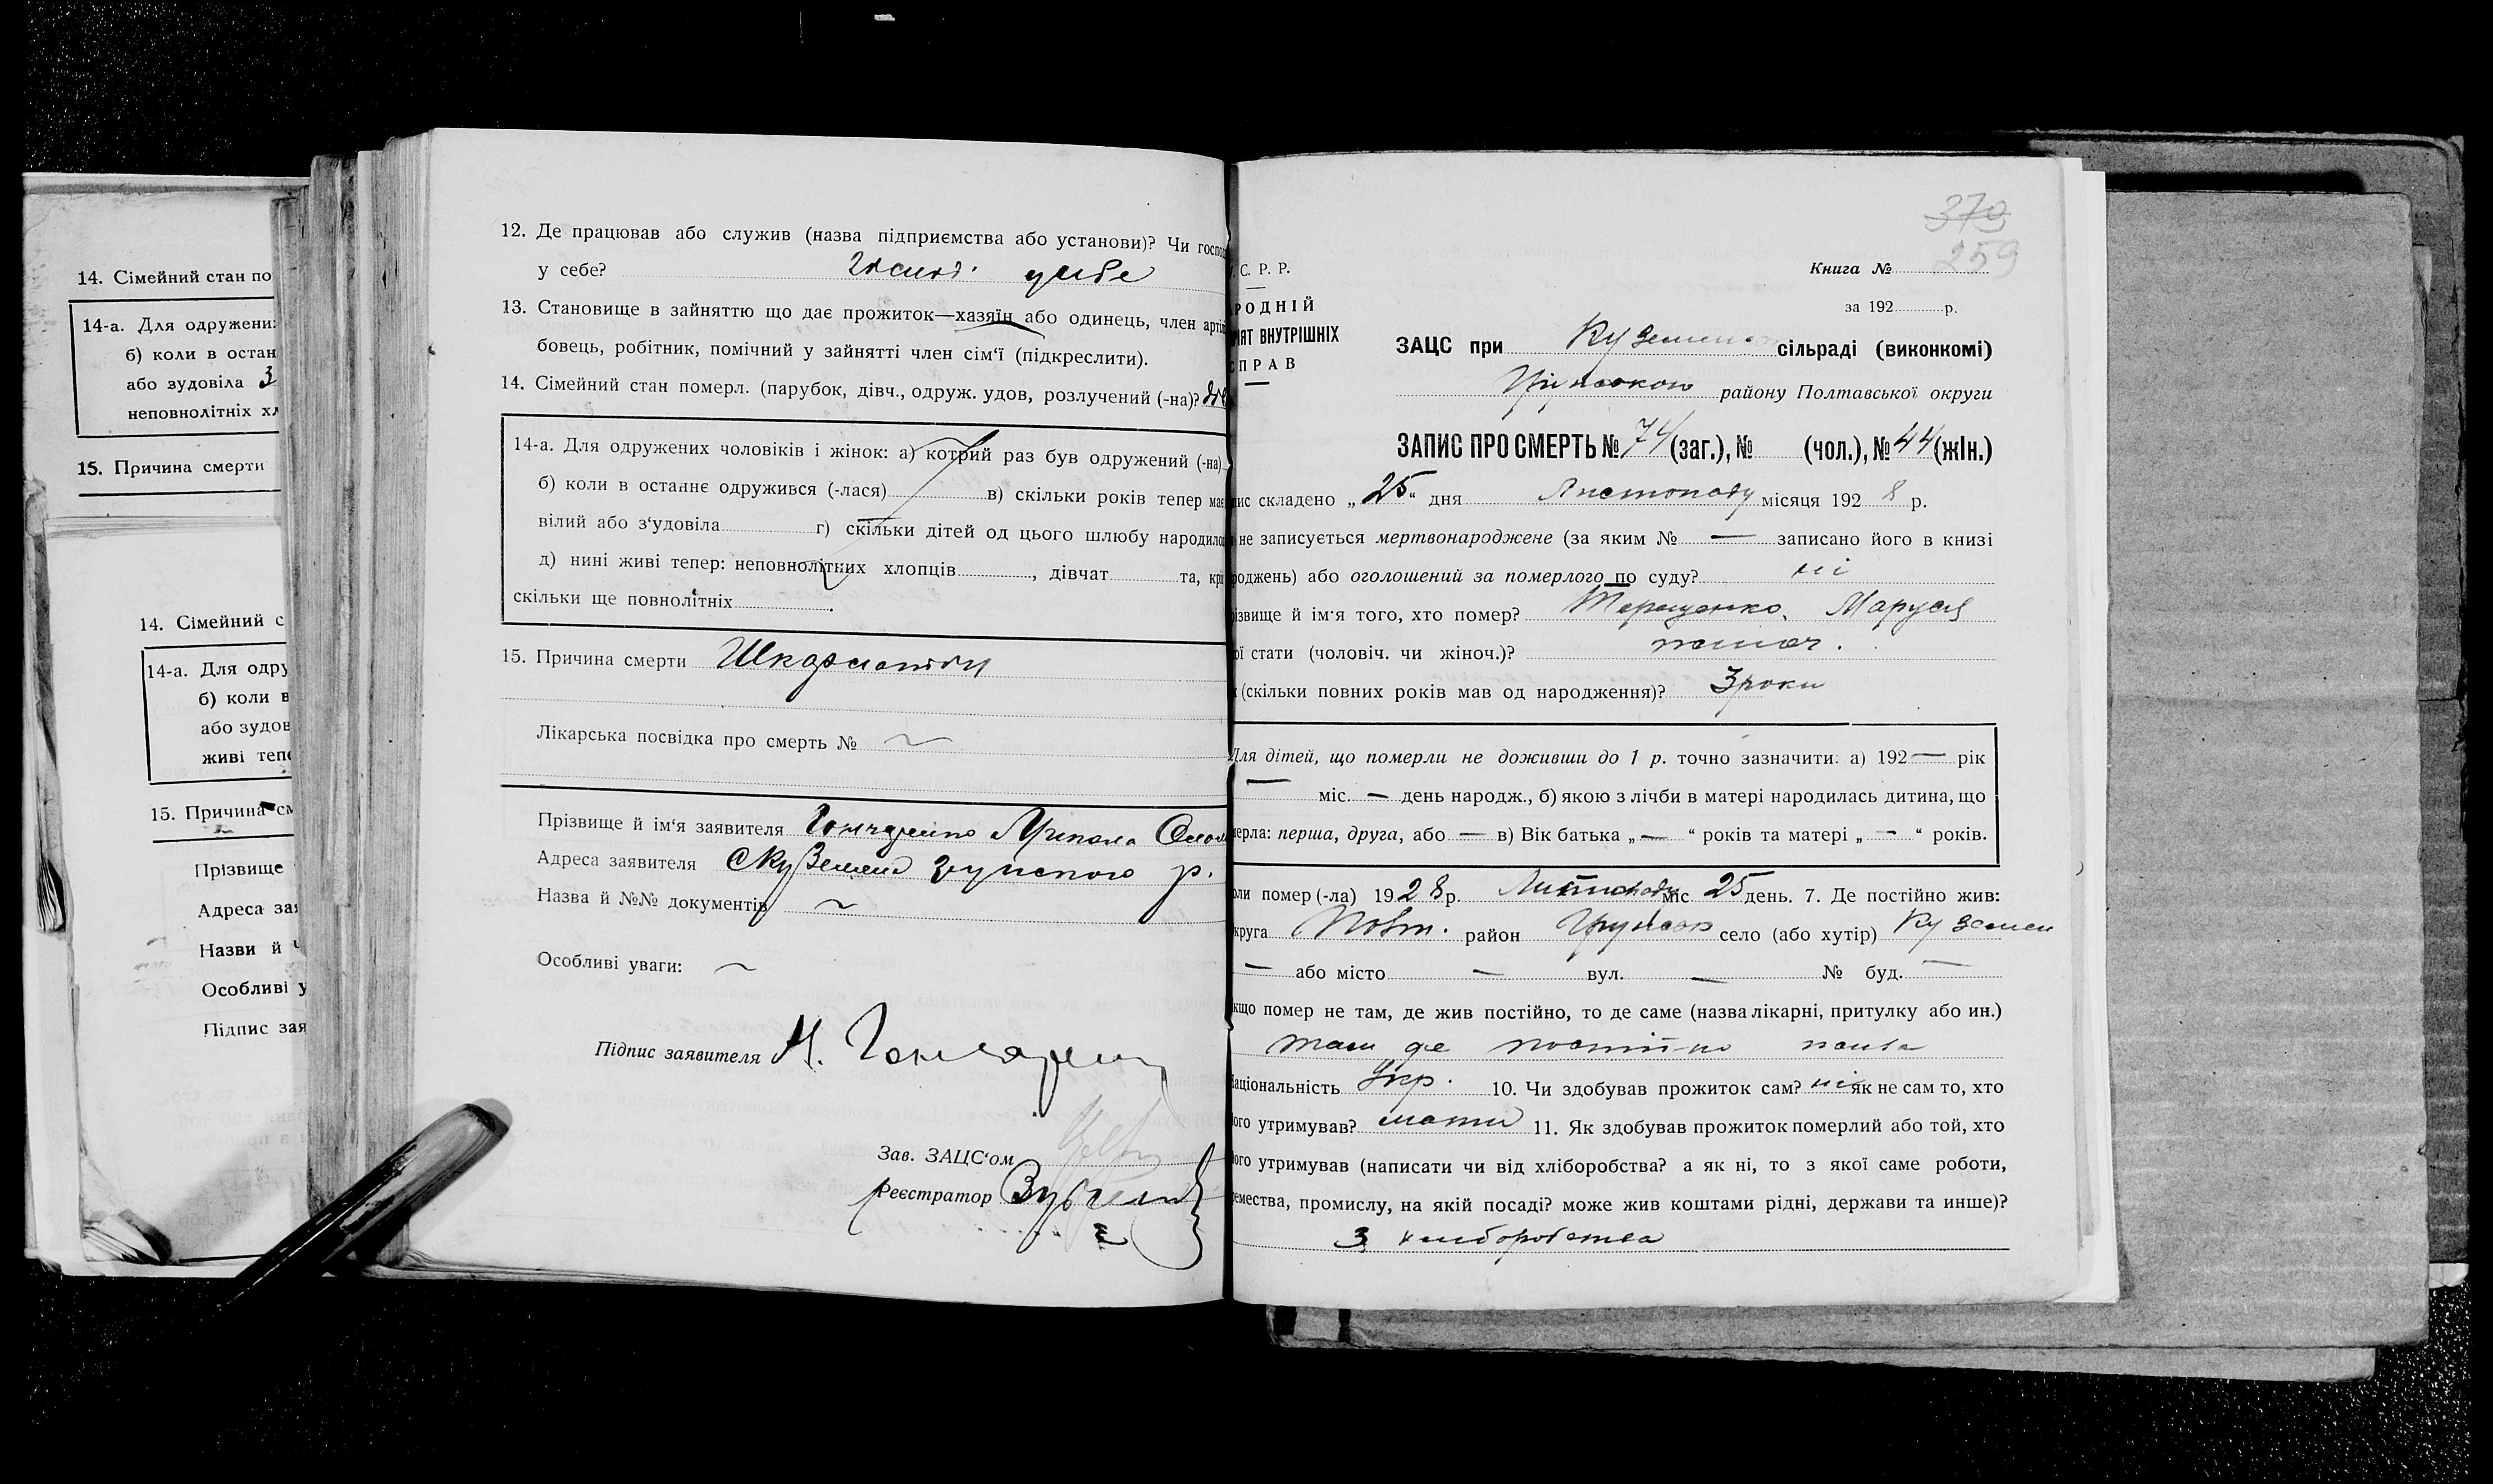 14. Сімейний стан по
14-а. Для одружени
б) коли в остан
або зудовіла З
неповнолітніх хл
15. Причина смерти
14. Сімейний с
14-а. Для одру
б) коли в
або зудов
живі тепе
15. Причина см
Прізвище
Адреса зая
Назви й ч
Особливі у
Підпис зая
12. Де працював або служив (назва підприємства або установи)? Чи госпо
у себе? у себе
13. Становище в зайняттю що дає прожиток—хазяїн або одинець, член арті
бовець, робітник, помічний у зайнятті член сім‘ї (підкреслити).
14. Сімейний стан померл. (парубок, дівч., одруж. удов, розлучений (-на)?
14-а. Для одружених чоловіків і жінок: а) котрий раз був одружений (-на)
б) коли в останнє одружився (-лася) в) скільки років тепер має
вілий або з‘удовіла г) скільки дітей од цього шлюбу народило
д) нині живі тепер: неповнолітних хлопців, дівчат та, крі
скільки ще повнолітніх.
15. Причина смерти Шкарлатін
Лікарська посвідка про смерть №
Прізвище й ім‘я заявителя Гончаренко Микола
Адреса заявителя с Куземен грунского р.
Назва й №№ документів
Особливі уваги:
Підпис заявителя М. Гончарен
Зав. ЗАЦС‘ом
Реєстратор
370
259
Книга №
С. Р. Р.
за 192 р.
РОДНІЙ
ІЯТ ВНУТРІШНІХ
ПРАВ
ЗАЦС при Куземен сільраді (виконкомі)
Грунському району Полтавської округи
ЗАПИС ПРО СМЕРТЬ № 74 (заг.), № (чол.), № 44 (жін.)
пис складено „25“ дня Листопаду місяця 1928 р.
не записується мертвонароджене (за яким № — записано його в книзі
роджень) або оголошений за померлого по суду? ні
різвище й ім‘я того, хто помер? Терещенко, Маруся
ої стати (чоловіч. чи жіноч.)? жіноч.
(скільки повних років мав од народження)? 3 роки
Для дітей, що померли не доживши до 1 р. точно зазначити: а) 192— рік
— міс. — день народж., б) якою з лічби в матері народилась дитина, що
мерла: перша, друга, або — в) Вік батька „—“ років та матері „—“ років.
оли помер (-ла) 1928 р. Листопаду міс 25 день. 7. Де постійно жив:
круга Полт. район Грунськ село (або хутір) Куземен
— або місто — вул. — № буд. —
кщо помер не там, де жив постійно, то де саме (назва лікарні, притулку або ин.)
там де постійно жила
аціональність Укр. 10. Чи здобував прожиток сам? ні як не сам то, хто
ого утримував? мати 11. Як здобував прожиток померлий або той, хто
ого утримував (написати чи від хліборобства? а як ні, то з якої саме роботи,
емества, промислу, на якій посаді? може жив коштами рідні, держави та инше)?
З хліборобства